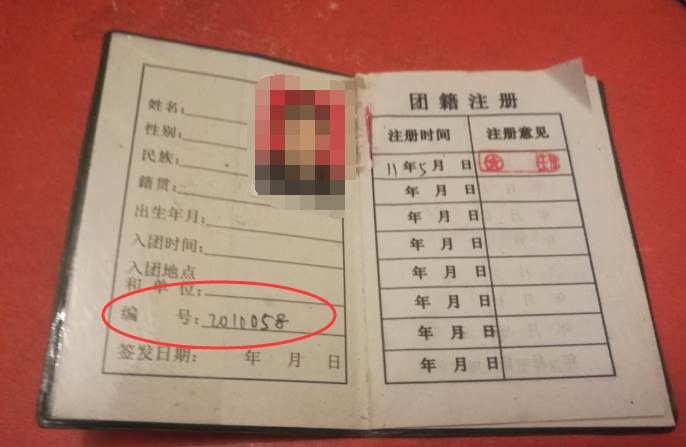 姓名:
性别:
民族:
籍贯:
出生年月:
入团时间:
入团地点
和单位:
编 号: 2010058
签发日期: 年 月 日
团籍注册
注册时间 注册意见
11年5月 日 注册
年 月 日
年 月 日
年 月 日
年 月 日
年 月 日
年 月 日
年 月 日